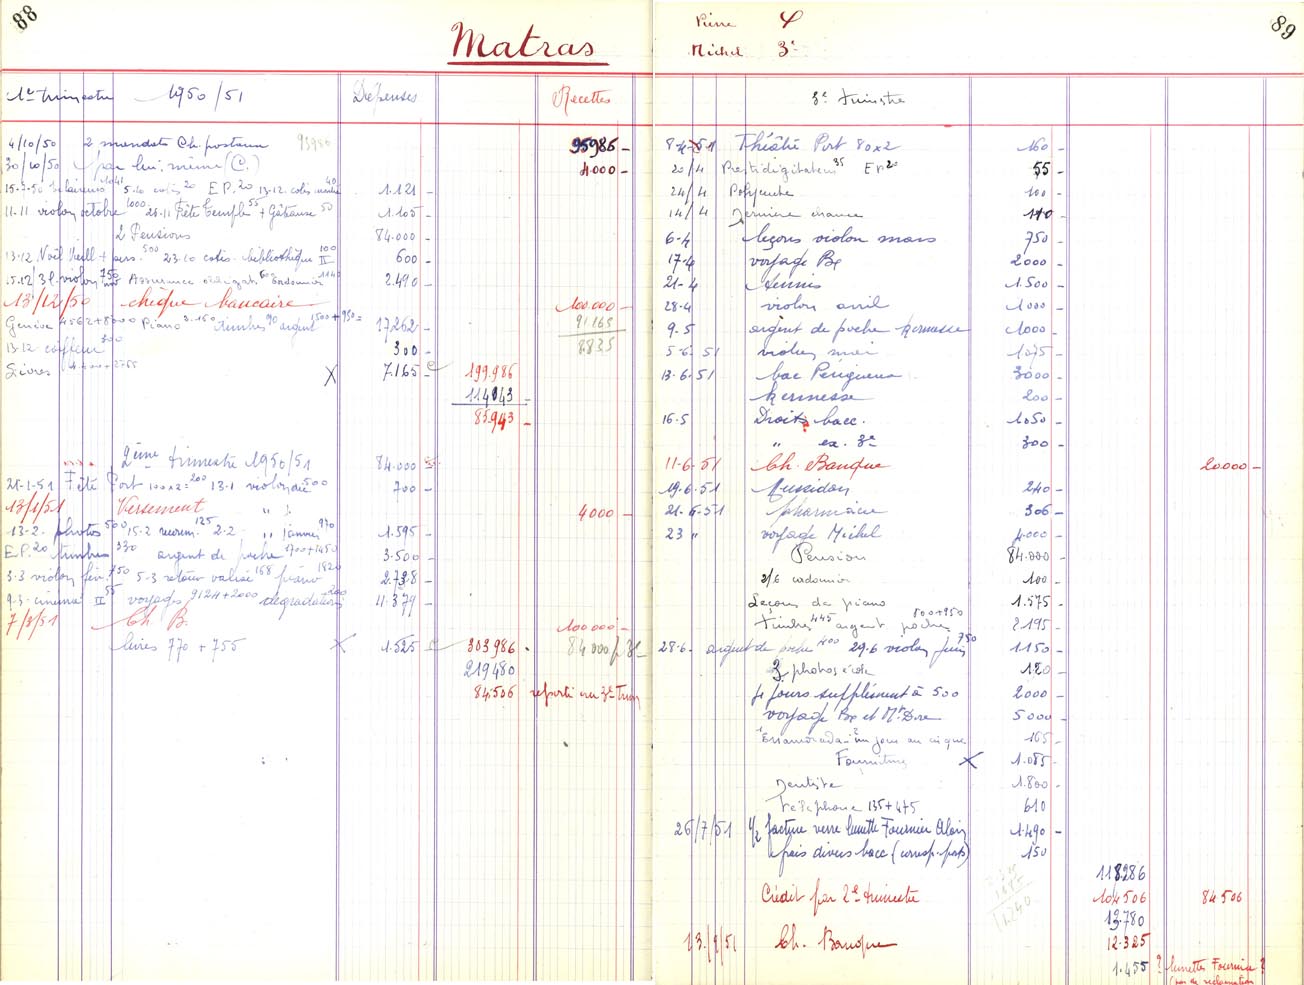 88
Matras
1er trimestre 1950/51 Dépenses Recettes
4/10/50 2 mandats Ch. postaux 95986 95986 -
30/10/50 par lui-même (C.) 4000 -
5.10 cotis 20 E.P. 20 13.12. cotis 40 1.121 -
11-11 violon octobre 1000 25-11 Fête Temple 55 + Gâteaux 50 1.105 -
2 Pensions 84.000 -
13.12. Noël Vieill + pers. 500 23.10 cotis. bibliothèque II 100 600 -
15.12 violon 750 Assurance obligat. 60 Cordonnier 1140 2.490 -
13/12/50 chèque bancaire 100.000 -
Genève 4562+8000 Piano 3.150 timbres 90 argent 1500+950= 17.262 - 91165
13-12 coiffeur 300 300 - 8.835
Livres 4.400+2765 X 7.165 - 199.986
114043 -
85.943 -
2ème trimestre 1950/51 84.000
21-1-51 Fête Port 100x2= 200 13.1 violon 500 700 -
13/1/51 Versement 4000 -
13-2. photos 500 15-2 125 2-2 " janvier 970 1.595 -
E.P. 20 timbres 330 argent de poche 1700+1450 3.500 -
3-3 violon fév. 750 5-3 retour valise 168 piano 1820 2.738 -
9-3. cinéma II 55 voyages 9124+2000 dégradations 200 11.379 -
7/3/51 Ch B. 100.000 -
livres 770 + 755 X 1.525 303.986 84000
219480
84.506 reporté au 3e Trim
Pierre 4
Michel 3e
89
3e trimestre
8-4-51 Théâtre Port 80x2 160 -
20/4 Prestidigitateur 35 EP 20 55 -
24/4 Polyeucte 100 -
14/4 Dernière séance 110 -
6-4 leçons violon mars 750 -
17-4 voyage Bx 2000 -
21-4 tennis 1.500 -
28-4 violon avril 1000 -
9.5 argent de poche kermesse 1000 -
5-6-51 violon mai 1075 -
13-6.51 bac Périgueux 3000 -
kermesse 200 -
16.5 Droits bacc. 1050 -
" ex. 3e 300 -
11-6-51 Ch. Banque 20000 -
19.6.51 Mussidan 240 -
21-6-51 pharmacie 306 -
23 " voyage Michel 4000 -
Pension 84.000 -
2/6 cordonnier 100 -
Leçons de piano 1.575 -
timbres 445 argent poche 800+950 2195 -
28-6. argent de poche 400 29.6 violon juin 750 1150 -
3 photos école 120 -
4 jours supplément à 500 2000 -
voyage Bx et Mt Dore 5000 -
un jour au cirque 165
Fournitures X 1.085 -
Dentiste 1.800 -
Téléphone 135+475 610
26/7/51 1/2 facture verre lunette Fournier Alain 1.490 -
frais divers bacc (corresp. ports) 150
118286
Crédit par 2e trimestre 104506 84506
13.780
13/9/51 Ch. Banque 12.325
1.455 ? lunettes Fournier ?
(pas de réclamation